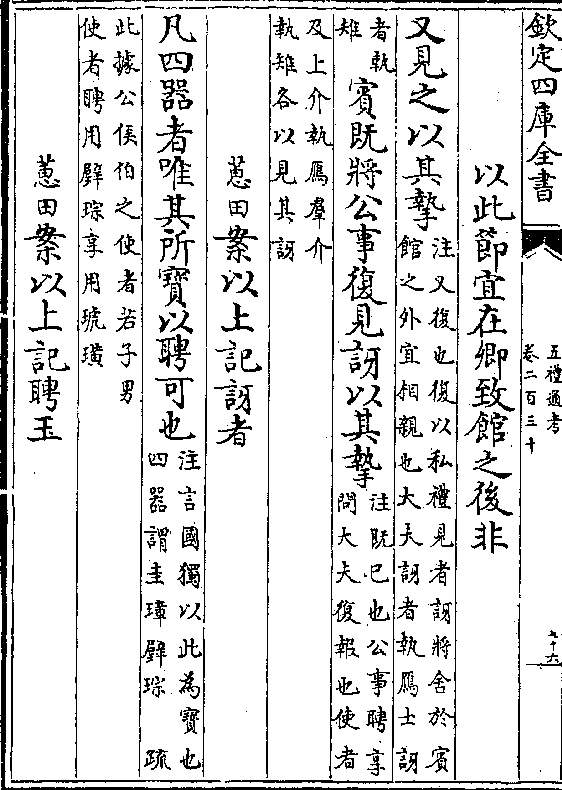 欽定四庫全書
五禮通考
卷二百三十
九十六
以此節宜在卿致館之後非
又見之以其摯注又復也復以私禮見者訝將舍於賓
館之外宜相親也大夫訝者執鴈士訝
者執
雉
賓既將公事復見訝以其摯注既已也公事聘享
問大夫復報也使者
及上介執鴈羣介
執雉各以見其訝
蕙田案以上記訝者
凡四器者唯其所寶以聘可也注言國獨以此為寶也
四器謂圭璋璧琮 疏
此據公侯伯之使者若子男
使者聘用璧琮享用琥璜
蕙田案以上記聘玉